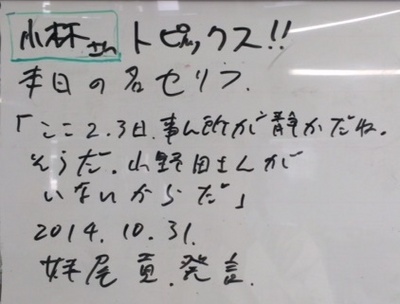 小林さん トピックス!!
本日の名セリフ.
「ここ2.3日.事ム所が静かだね。
そうだ.小野田さんが
いないからだ」
2014.10.31.
妹尾 夏.発言.